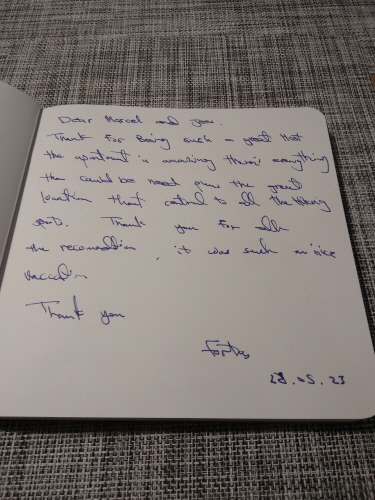 Dear Marcel and
Thank for Being such a great Host
the apartment is amazing there's everything
then could be need plus the great
location that central to all the Hiking
spot. Thank you for all
the recomendation, it was such a nice
vacation
Thank you
28.05.23